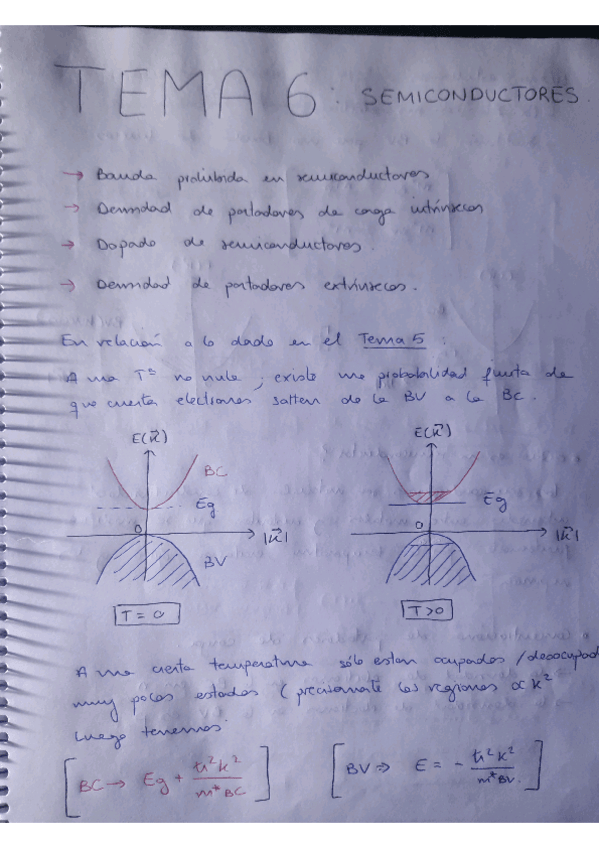 TEMA 6: SEMICONDUCTORES.
→ Banda prohibida en semiconductores
→ Densidad de portadores de carga intrínsecos
→ Dopado de semiconductores.
→ Densidad de portadores extrínsecos.
En relación a lo dado en el Tema 5:
A una Tª no nula, existe una probabilidad finita de
que cierta electrones salten de la BV a la BC.
E(k⃗) E(k⃗)
BC
Eg Eg
0 0
|k⃗| |k⃗|
BV
T = 0 T>0
A una cierta temperatura sólo estan ocupados / desocupad
muy pocos estados (precisamente las regiones ∝ k²
luego tenemos:
[BC → Eg + ħ²k²/m*BC] [BV ⇒ E = - ħ²k²/m*BV.]